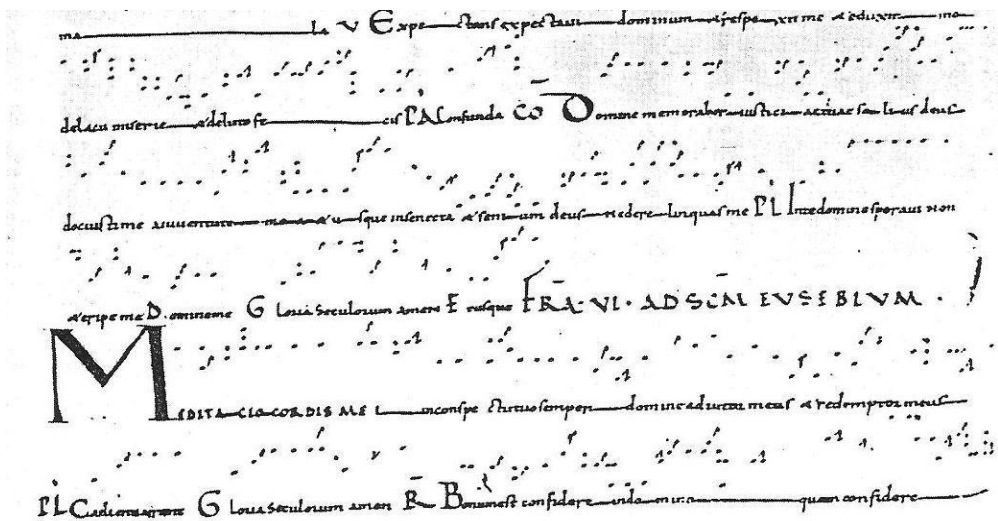 ma la V Expe ctans expectavi dominum & respe xit me & eduxit me
delacu miserie & deluto fe cis P A Confunda CO Domine memorabor iusticiae tuae solius deus
docuisti me aiuventute mea & usque insenecta & senium deus ne derelinquas me PL Inte domine speravi non
& eripe me D omine me G loria seculorum amen E eusque FRA · VI · AD SCM EUSEBIUM ·
MEDITACIO CORDIS MEI inconspe ctu tuo semper domine adiutor meus & redemptor meus
PL G loria seculorum amen R Bonum est confidere indomino quam confidere